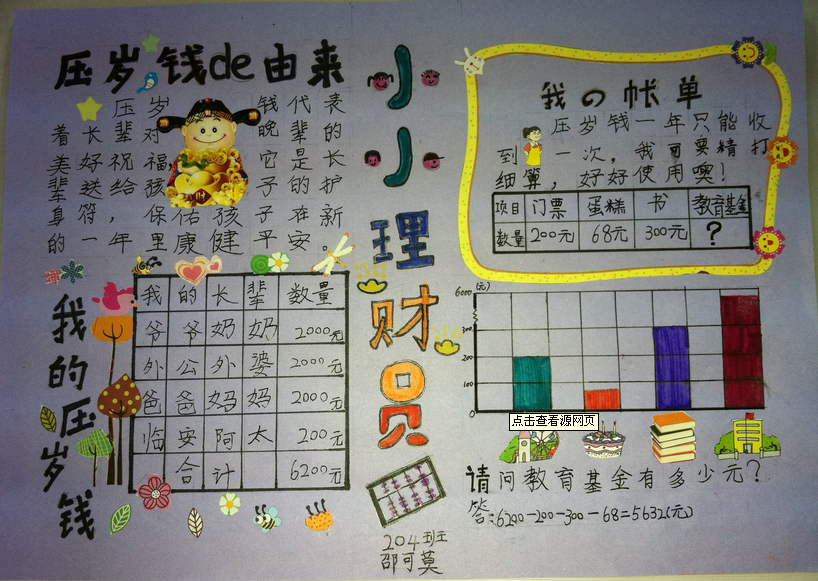 压岁钱de由来
压岁钱代表
着长辈对晚辈的
美好祝福,它是长
辈送给孩子的护
身符,保佑孩子在新
的一年里康健平安。
我的压岁钱
我的长辈 数量
爷爷奶奶 2000元
外公外婆 2000元
爸爸妈妈 2000元
临安阿太 200元
合计 6200元
小小理财员
204班
邵可莫
我の帐单
压岁钱一年只能收
到一次,我可要精打
细算,好好使用噢!
项目 门票 蛋糕 书 教育基金
数量 200元 68元 300元 ?
(元)
6000
300
200
100
0
点击查看源网页
请问教育基金有多少元?
答:6200-200-300-68=5632(元)